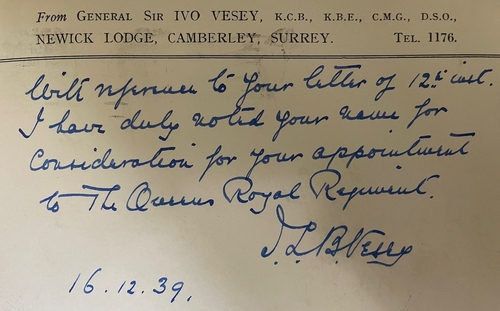 From GENERAL SIR IVO VESEY, K.C.B., K.B.E., C.M.G., D.S.O.,
NEWICK LODGE, CAMBERLEY, SURREY. TEL. 1176.
With reference to your letter of 12th inst.
I have duly noted your name for
consideration for your appointment
to The Queens Royal Regiment.
I.L.B. Vesey
16.12.39.